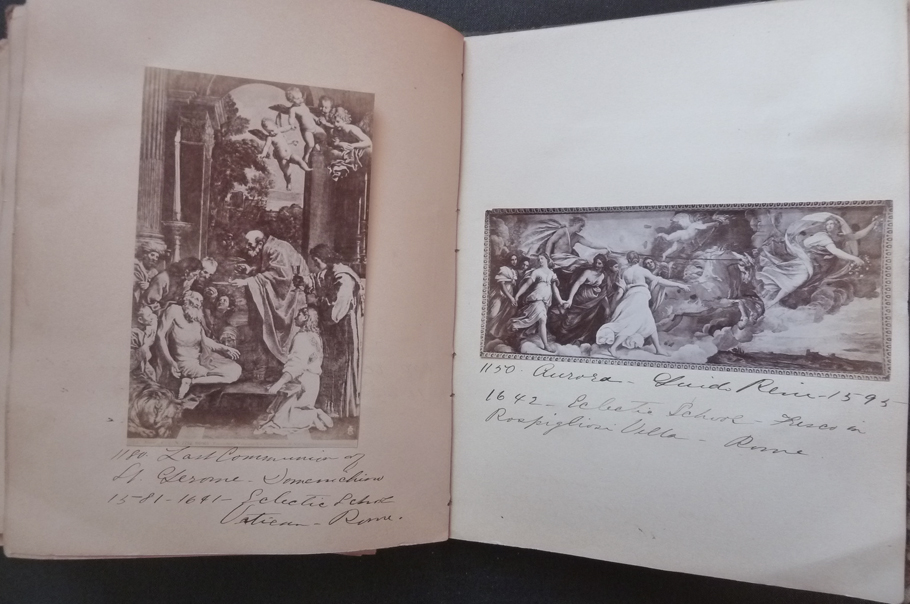 1180. Last Communion of
St Gerome - Domenichino
1581-1641 - Eclectic School
Vatican - Rome.
1150. Aurora - Guido Reni - 1595-
1642 - Eclectic School - Fresco in
Rospigliosi Villa - Rome